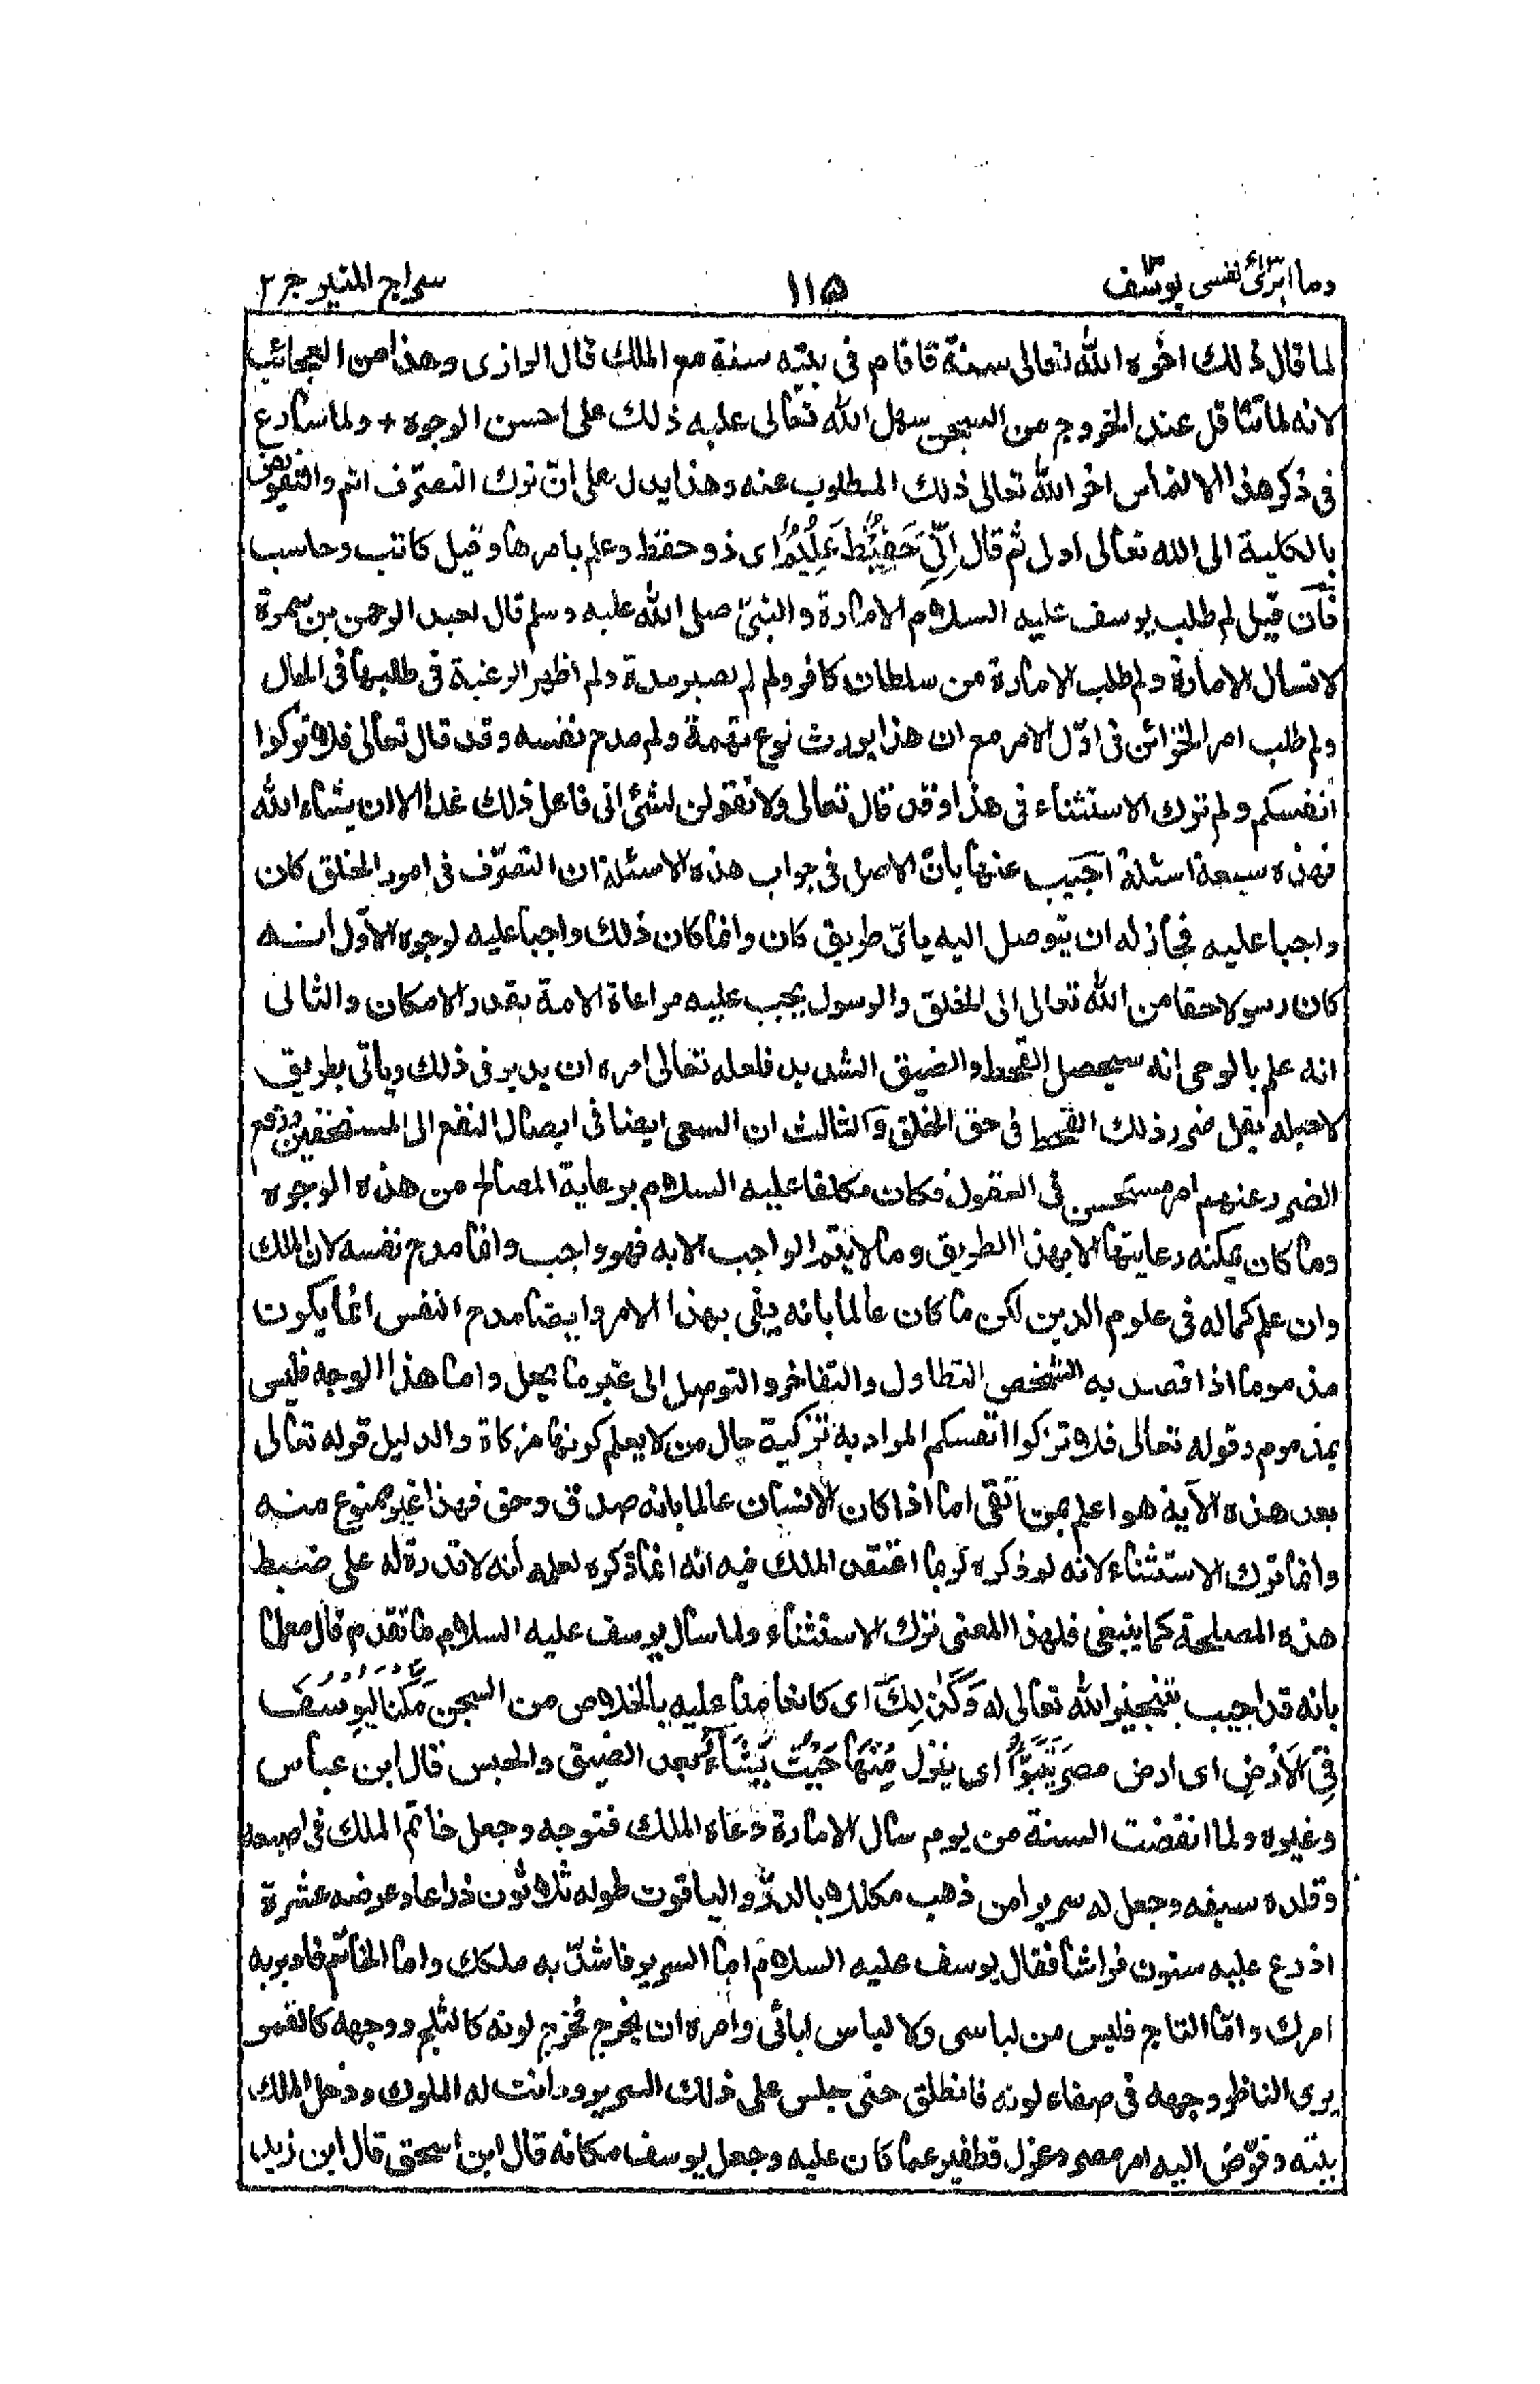 وما ابرئ نفسى يوسف ١١٥ سراج المنير جز ٢
لما قال ذلك اخره الله تعالى سنة فاقام فى بيته سنة مع الملك قال الرازى وهذا من العجائب
لانه لما تثاقل عند الخروج من السجن سهل الله تعالى عليه ذلك على احسن الوجوه + ولما سارع
فى ذكر هذا الالتماس اخر الله تعالى ذلك المطلوب عنه وهذا يدل على انّ ترك التصرّف اتم والتفويض
بالكلية الى الله تعالى اولى ثم قال اِنِّىْ حَفِيْظٌ عَلِيْمٌ اى ذو حفظ وعلم بامرها وقيل كاتب وحاسب
فَان قيل لم طلب يوسف عليه السلام الامارة والنبىّ صلى الله عليه وسلم قال لعبد الرحمن بن سمرة
لا تسأل الامارة ولم طلب الامارة من سلطان كافر ولم لم يصبر مدة ولم اظهر الرغبة فى طلبها فى الحال
ولم طلب امر الخزائن فى اوّل الامر مع ان هذا يورث نوع تهمة ولم مدح نفسه وقد قال تعالى فلا تزكوا
انفسكم ولم ترك الاستثناء فى هذا وقد قال تعالى ولا تقولن لشئ انى فاعل ذلك غدا الا ان يشاء الله
فهذه سبعة اسئلة اجيب عنها بانّ الاصل فى جواب هذه الاسئلة ان التصرّف فى امور الخلق كان
واجبا عليه فجاز له ان يتوصل اليه باىّ طريق كان وانما كان ذلك واجبا عليه لوجوه الاوّل انه
كان رسولا حقا من الله تعالى الى الخلق والرسول يجب عليه مراعاة الامة بقدر الامكان والثانى
انه علم بالوحى انه سيحصل القحط والضيق الشديد فلعله تعالى امره ان يدبر فى ذلك وياتى بطريق
لاجله يقل ضرر ذلك القحط فى حق الخلق والثالث ان السعى ايضا فى ايصال النفع الى المستحقين ودفع
الضرر عنهم امر مستحسن فى العقول فكان مكلفا عليه السلام برعاية المصالح من هذه الوجوه
وما كان يمكنه رعايتها الا بهذا الطريق وما لا يتم الواجب الا به فهو واجب وانما مدح نفسه لان الملك
وان علم كماله فى علوم الدين لكن ما كان عالما بانه يفى بهذا الامر وايضا مدح النفس انما يكون
مذموما اذا قصد به الشخص التطاول والتفاخر والتوصل الى غير ما يحل واما هذا الوجه فليس
بمذموم وقوله تعالى فلا تزكوا انفسكم المراد به تزكية حال من لا يعلم كونها مزكاة والدليل قوله تعالى
بعد هذه الآية هو اعلم بمن اتقى اما اذا كان الانسان عالما بانه صدق وحق فهذا غير ممنوع منه
وانما ترك الاستثناء لانه لو ذكره لربما اعتقد الملك فيه انه انما ذكره لعلمه أنه لا قدرة له على ضبط
هذه المصلحة كما ينبغى فلهذا المعنى ترك الاستثناء ولما سأل يوسف عليه السلام ما تقدم قال معلما
بانه قد اجيب بتنجيز الله تعالى له وَكَذٰلِكَ اى كانعامنا عليه بالخلاص من السجن مَكَّنَّا لِيُوْسُفَ
فِى الْاَرْضِ اى ارض مصر يَتَبَوَّاُ اى ينزل مِنْهَا حَيْثُ يَشَآءُ بعد الضيق والحبس قال ابن عباس
وغيره ولما انقضت السنة من يوم سأل الامارة دعاه الملك فتوجه وجعل خاتم الملك فى اصبعه
وقلده سيفه وجعل له سريرا من ذهب مكللا بالدرّ والياقوت طوله ثلاثون ذراعا وعرضه عشرة
اذرع عليه ستون فراشا فقال يوسف عليه السلام اما السرير فاشدّ به ملكك واما الخاتم فادبر به
امرك وامّا التاج فليس من لباسى ولا لباس ابائى وامره ان يخرج فخرج لونه كالثلج ووجهه كالقمر
يرى الناظر وجهه فى صفاء لونه فانطلق حتى جلس على ذلك السرير ودانت له الملوك ودخل الملك
بيته وفوّض اليه امر مصر وعزل قطفير عما كان عليه وجعل يوسف مكانه قال ابن اسحق قال ابن زيد